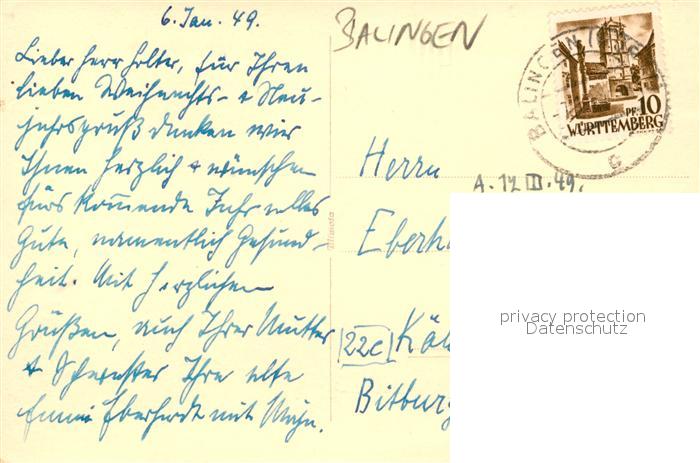 6. Jan. 49.
BALINGEN
Lieber Herr Holter, für Ihren
lieben Weihnachts- + Neu-
jahrsgruß danken wir
Ihnen herzlich + wünschen
fürs kommende Jahr alles
Gute, namentlich Gesund-
heit. Mit herzlichen
Grüßen, auch Ihrer Mutter
+ Schwester Ihre alte
Emmi Eberhardt mit
BALINGEN
PF. 10
WÜRTTEMBERG
G
Herrn
A. 17 III. 49.
Eberh
22c Köl
Bitburg
privacy protection
Datenschutz